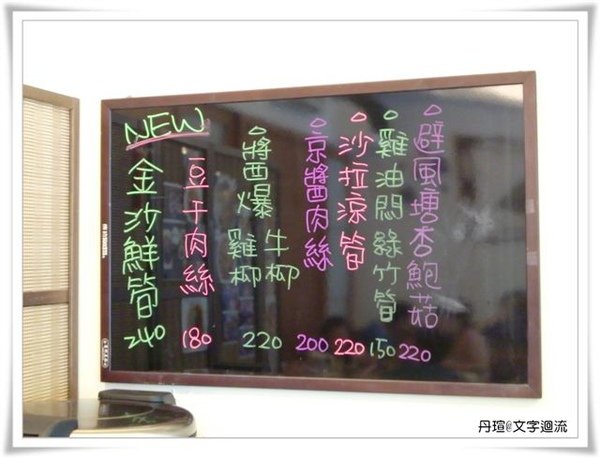 避風塘杏鮑菇 220
雞油悶綠竹筍 150
沙拉涼筍 220
京醬肉絲 200
醬爆牛柳雞柳 220
豆干肉絲 180
NEW
金沙鮮筍 240
丹瑄@文字迴流